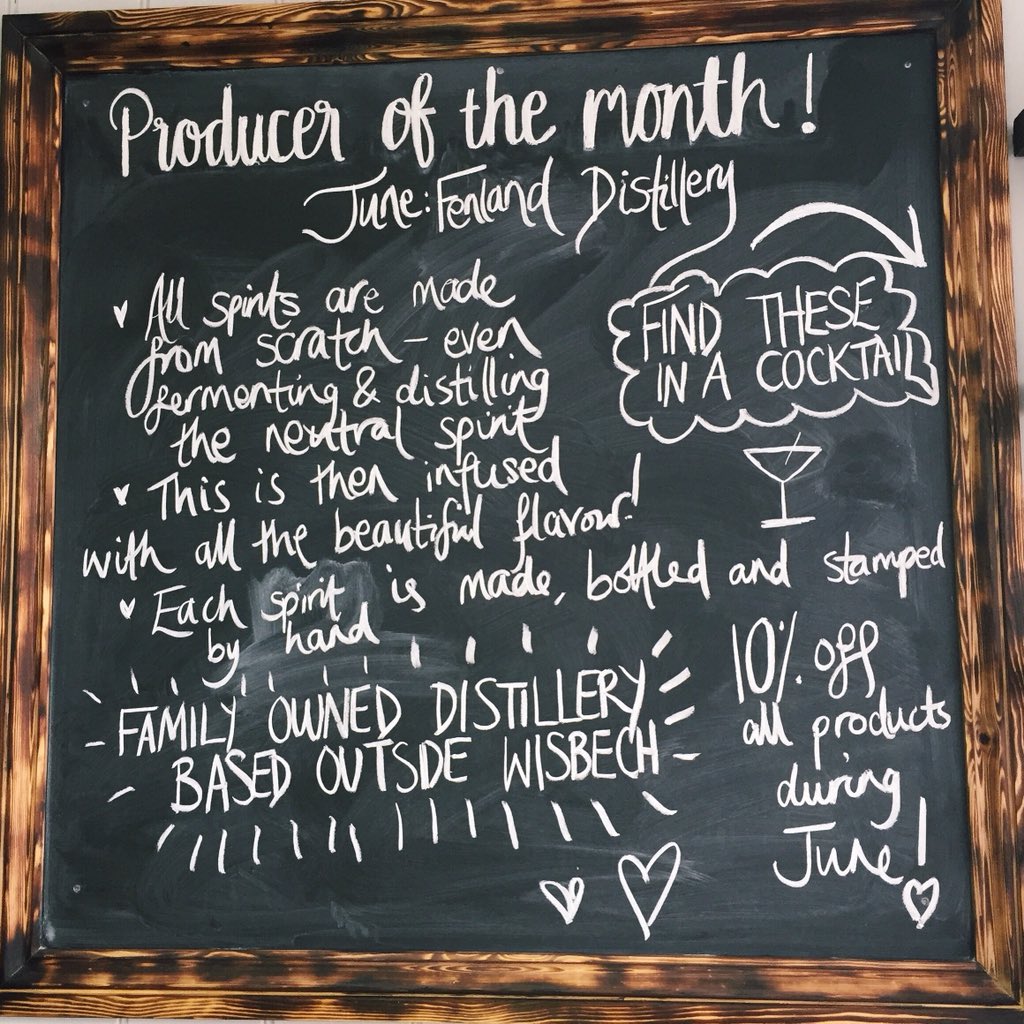 Producer of the month!
June: Fenland Distillery
♥ All spirits are made
from scratch – even
fermenting & distilling
the neutral spirit
♥ This is then infused
with all the beautiful flavour!
♥ Each spirit is made, bottled and stamped
by hand
FIND THESE
IN A COCKTAIL
FAMILY OWNED DISTILLERY
BASED OUTSIDE WISBECH
10% off
all products
during
June!